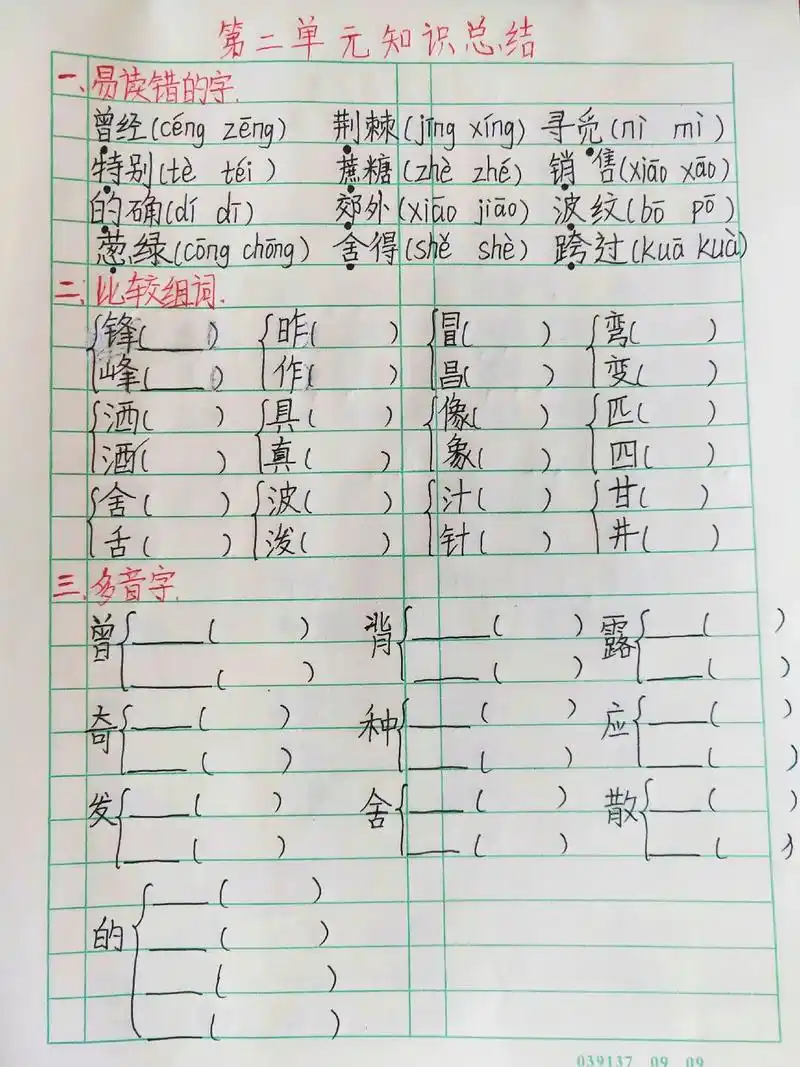 第二单元知识总结
一、易读错的字.
曾经(céng zēng) 荆棘(jīng xíng) 寻觅(nì mì)
特别(tè téi) 蔗糖(zhè zhé) 销售(xiāo xāo)
的确(dí dī) 郊外(xiāo jiāo) 波纹(bō pō)
葱绿(cōng chōng) 舍得(shě shè) 跨过(kuā kuà)
二、比较组词.
锋(____) 昨( ) 冒( ) 弯( )
峰(____) 作( ) 昌( ) 变( )
洒( ) 具( ) 像( ) 匹( )
酒( ) 真( ) 象( ) 四( )
舍( ) 波( ) 汁( ) 甘( )
舌( ) 泼( ) 针( ) 井( )
三、多音字.
曾 ____( ) 背 ____( ) 露 ____( )
____( ) ____( ) ____( )
奇 ____( ) 种 ____( ) 应 ____( )
____( ) ____( ) ____( )
发 ____( ) 舍 ____( ) 散 ____( )
____( ) ____( ) ____( )
的 ____( )
____( )
____( )
____( )
039137 09 09